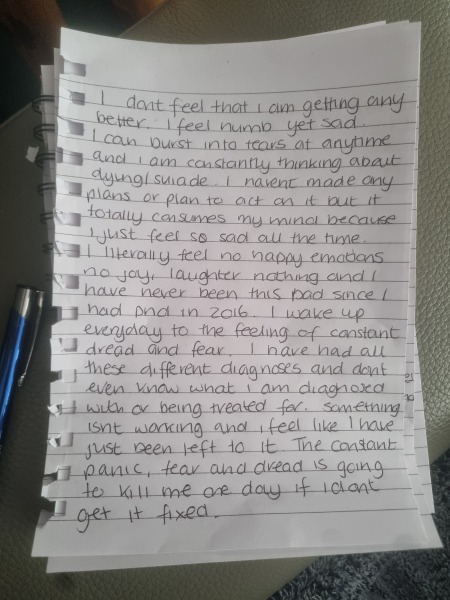 I dont feel that i am getting any
better. I feel numb yet sad.
I can burst into tears at anytime
and i am constantly thinking about
dyung/suiade. I havent made any
plans or plan to act on it but it
totally consumes my mind because
I just feel so sad all the time.
I literally feel no happy emotions
no joy, laughter nothing and I
have never been this bad since I
had pnd in 2016. I wake up
everyday to the feeling of constant
dread and fear. I have had all
these different diagnoses and dont
even know what i am diagnosed
with or being treated for. Something
isnt working and i feel like I have
just been left to it The constant
panic, fear and dread is going
to kill me one day if i dont
get it fixed.